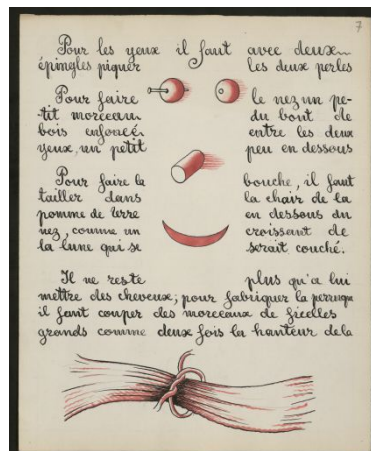 7
Pour les yeux il faut avec deux
épingles piquer les deux perles
Pour faire le nez un pe-
-tit morceau du bout de
bois enfoncé entre les deux
yeux, un petit peu en dessous
Pour faire la bouche, il faut
tailler dans la chair de la
pomme de terre en dessous du
nez, comme un croissant de
la lune qui se serait couché.
Il ne reste plus qu'a lui
mettre des cheveux; pour fabriquer la perruque
il faut couper des morceaux de ficelles
grands comme deux fois la hauteur de la